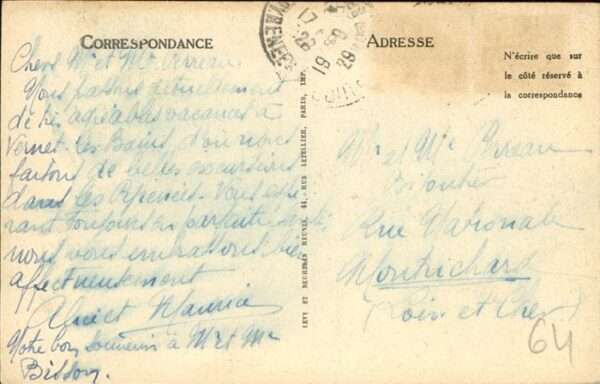 CORRESPONDANCE
Chers Mr et Me Erreau
Nous passons actuellement
de très agréables vacances à
Vernet-les Bains d'où nous
faisons de belles excursions
dans les Pyrénées. Vous espé-
rant toujours en parfaite santé
nous vous embrassons bien
affectueusement
et Maurice
Notre bon souvenir à Mr et Me
Bisson.
LEVY ET NEURDEIN REUNIS, 44, RUE LETELLIER, PARIS, IMP.
PYRENEES
17
19
29
ADRESSE
N'écrire que sur
le côté réservé à
la correspondance
Mr et Me Erreau
Bijoutier
Rue Nationale
Montrichard
(Loir et Cher)
64